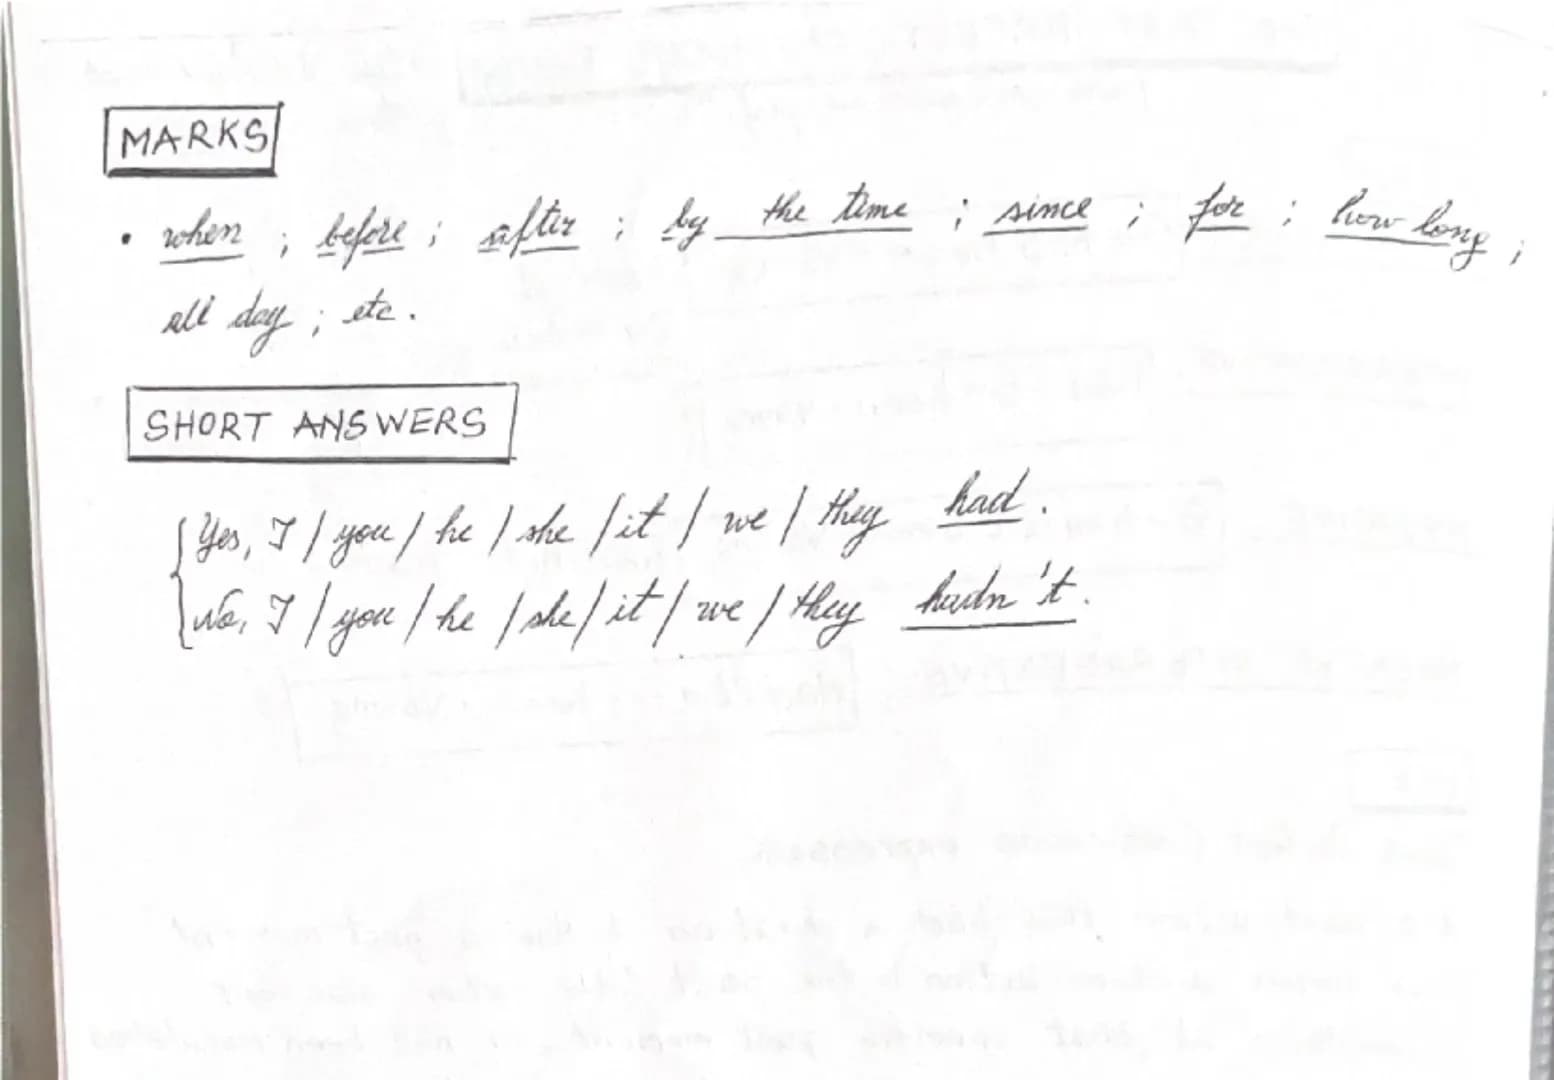 MARKS
• when ; before ; after ; by the time ; since ; for ; how long ;
all day ; etc.
SHORT ANSWERS
Yes, I / you / he / she / it / we / they had.
No, I / you / he / she / it / we / they hadn't.